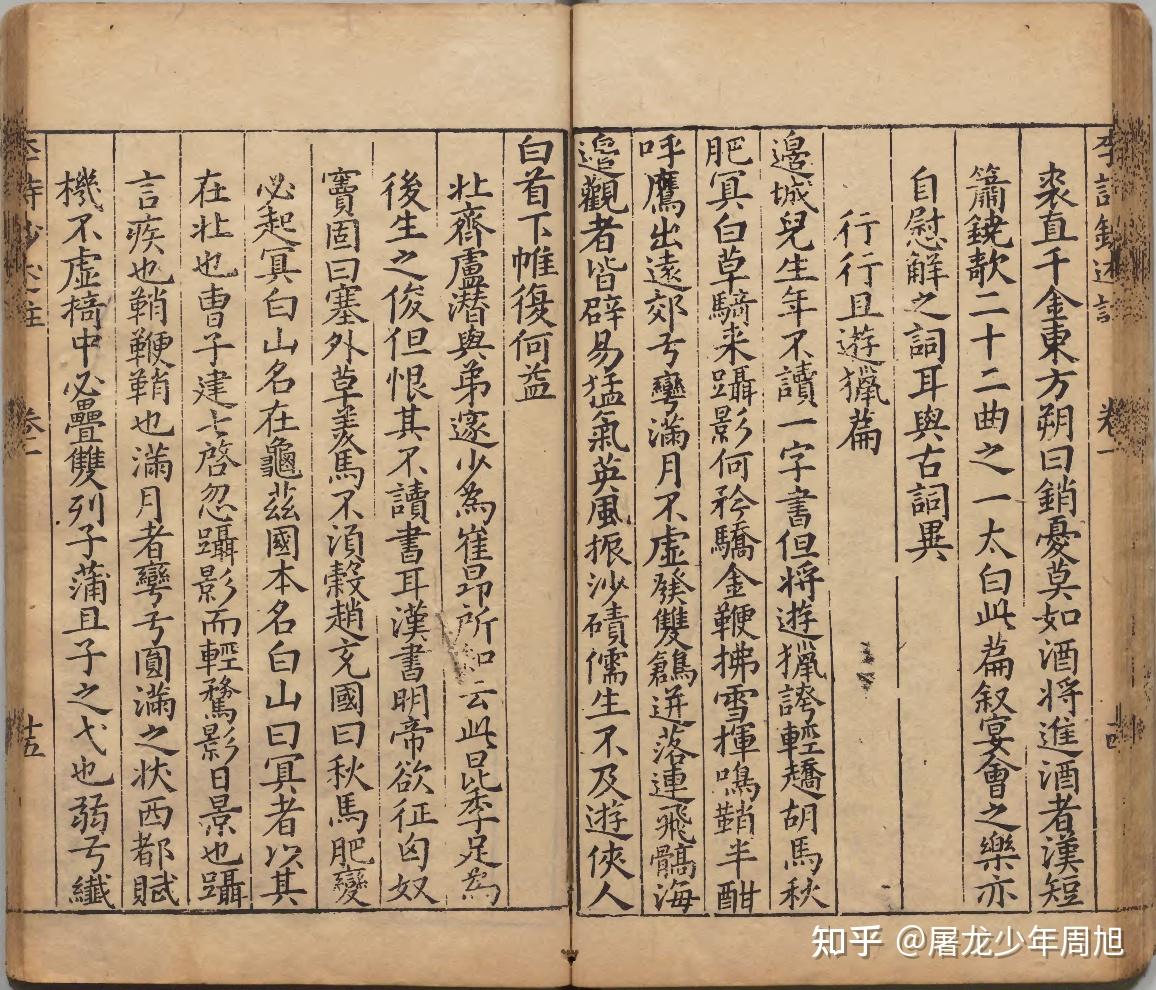 李詩鈔述註 卷一
裘直千金東方朔曰銷憂莫如酒将進酒者漢短
簫鐃歌二十二曲之一太白此篇叙宴會之樂亦
自慰解之詞耳與古詞異
行行且遊獵篇
邉城兒生年不讀一字書但将遊獵誇輕趫胡馬秋
肥冥白草騎来躡影何矜驕金鞭拂雪揮鳴鞘半酣
呼鷹出遠郊弓彎滿月不虚發雙鶬迸落連飛髇海
邉觀者皆辟易猛氣英風振沙磧儒生不及遊俠人
白首下帷復何益
北齊盧潜與弟邃少為崔昂所 云此昆季足為
後生之俊但恨其不讀書耳漢書明帝欲征匈奴
竇固曰塞外草美馬不湏穀趙充國曰秋馬肥變
必起冥白山名在龜茲國本名白山曰冥者以其
在北也曹子建七啓忽躡影而輕騖影日景也躡
言疾也鞘鞭鞘也滿月者彎弓圓滿之狀西都賦
機不虚掎中必疊雙列子蒲且子之弋也弱弓纖
卷一
十五
知乎 @屠龙少年周旭